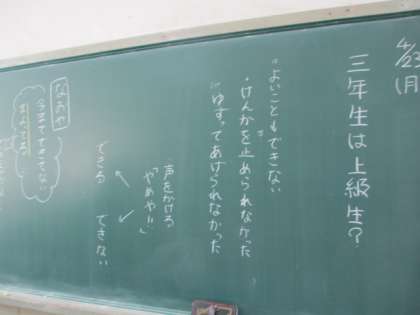 4/23
(月)
三年生は上級生?
よいこともできない
・けんかを止められなかった
ゆずってあげられなかった
声をかける
「やめや!!」
できる
できない
なおや